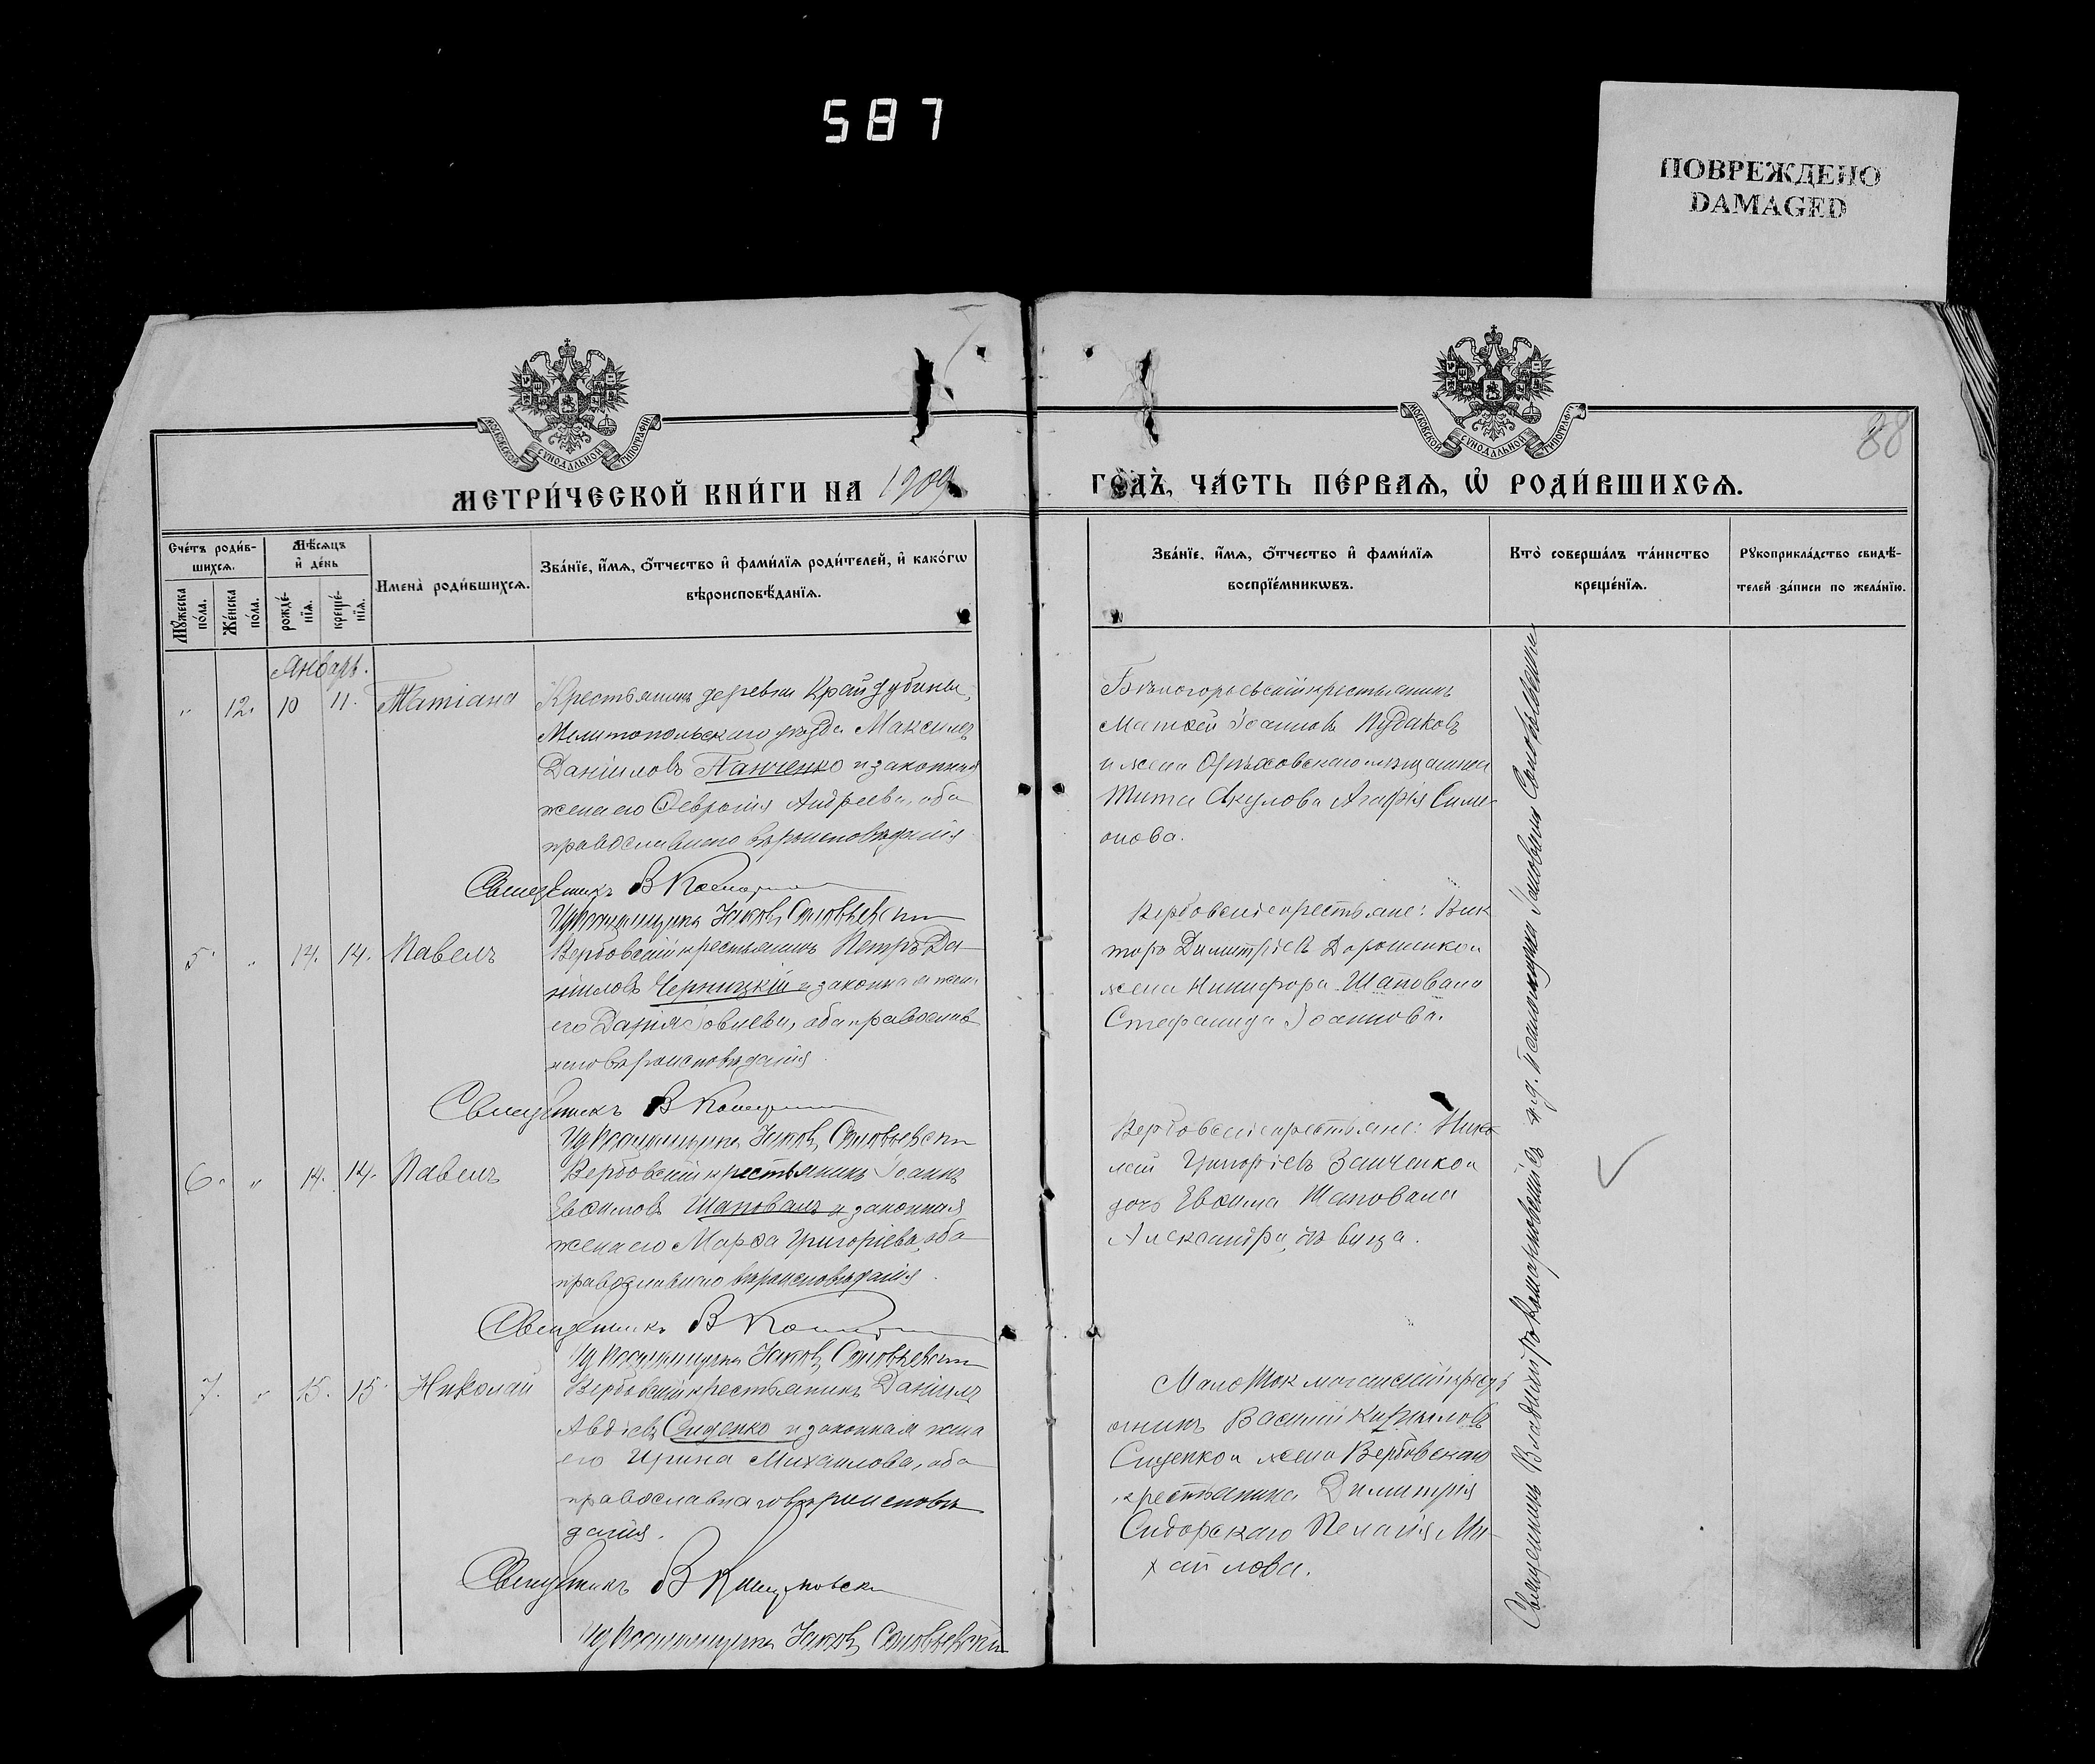 587
ПОВРЕЖДЕНО
DAMAGED
МОСКОВСКОЙ СѴНОДАЛЬНОЙ ТИПОГРАФІИ
МОСКОВСКОЙ СѴНОДАЛЬНОЙ ТИПОГРАФІИ
88
МЕТРИ́ЧЕСКОЙ КНИ́ГИ НА 1909
ГО́ДЪ, ЧА́СТЬ ПЕ́РВАѦ, Ѡ҆ РОДИ́ВШИХСѦ.
Сче́тъ роди́в-
шихсѧ.
Мѣ́сѧцъ
и҆ де́нь
Мꙋ́жеска
по́ла.
Же́нска
по́ла.
рожде́-
нїѧ.
креще́-
нїѧ.
Имена̀ роди́вшихсѧ.
Зва́нїе, и҆́мѧ, ѻ҆́тчество и҆ фами́лїѧ роди́телей, и҆ како́гѡ
вѣроисповѣ́данїѧ.
Зва́нїе, и҆́мѧ, ѻ҆́тчество и҆ фами́лїѧ
воспрїе́мникѡвъ.
Кто̀ соверша́лъ та́инство
креще́нїѧ.
Рꙋкоприкла́дство свидѣ́-
телей за́писи по жела́нїю.
Январь.
" 12. 10 11. Татіана
Крестьянинъ деревни Край Дубины,
Мелитопольскаго уѣзда Максимъ
Даніиловъ Панченко и законная
жена его Андреева, оба
православнаго вѣроисповѣданія
Священникъ В
Псаломщика Іаковъ
крестьянинъ
Матѳей Іоанновъ
и жена Орѣховскаго мѣщанина
Тита Акулова Агафія Симе-
онова.
5. " 14. 14. Павелъ
Вербовскій крестьянинъ Петръ Да-
ніиловъ Черницкій и законная жена
его Дарія Іовлева, оба православ
наго вѣроисповѣданія.
Священникъ В
Псаломщика Іаковъ
Вербовскіе крестьяне: Вик
торъ Димитріевъ Дорошенко и
жена Никифора Шаповала
Стефанида Іоаннова.
6. " 14. 14. Павелъ
Вербовскій крестьянинъ Іоаннъ
Евѳимовъ Шаповалъ и законная
жена его Марѳа Григоріева, оба
православнаго вѣроисповѣданія.
Священникъ В
Псаломщика Іаковъ
Вербовскіе крестьяне: Нико
лай Григоріевъ Заиченко и
дочь Евѳима Шаповала
Александра, дѣвица.
7. " 15. 15. Николай
Вербовскій крестьянинъ Даніилъ
Авдіевъ Сиденко и законная жена
его Ирина Михаилова, оба
православнаго вѣроисповѣ
данія.
Священникъ В
Псаломщика Іаковъ
Мало Токмачанскій крестъ
янинъ Василій Кирилловъ
Сиденко и жена Вербовскаго
крестьянина Димитрія
Сидорскаго Пелагія Ми-
хаилова.
Священникъ Владиміръ и. д. Псаломщика